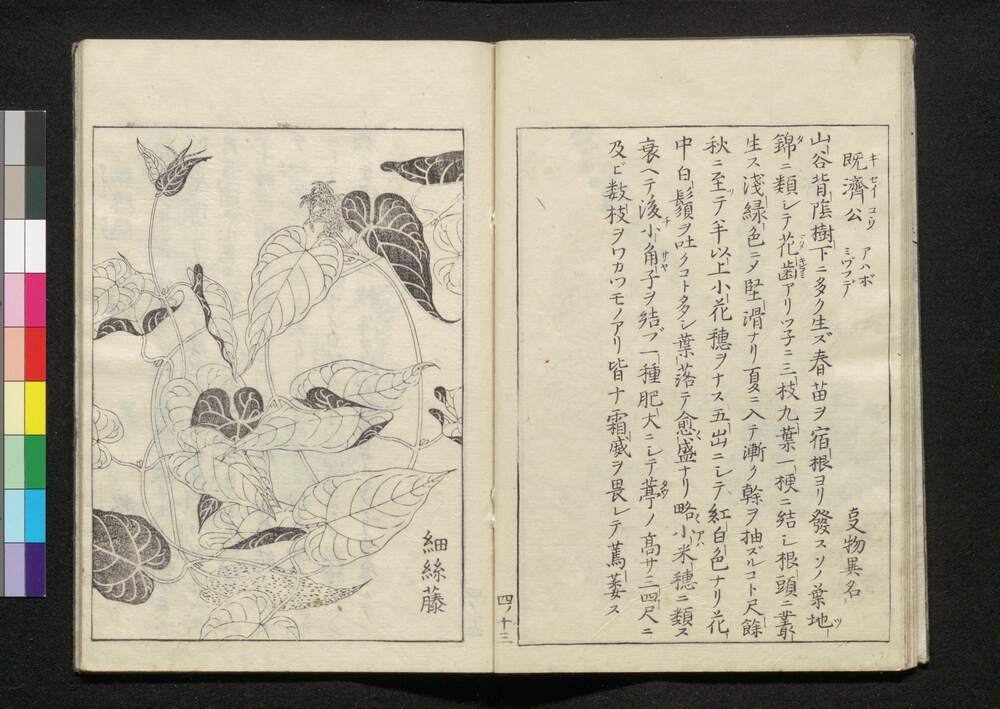 既濟公 キセイコウ アハボ ミツフデ 㕝物異名
山谷背蔭樹下ニ多ク生ズ春苗ヲ宿根ヨリ發スソノ葉地
錦ニ類シテ花歯アリツ子ニ三枝九葉一梗ニ結シ根頭ニ叢
生ス淺緑色ニメ堅滑ナリ夏ニ入テ漸ク幹ヲ抽ズルコト尺餘
秋ニ至テ半以上小花穗ヲナス五出ニシテ紅白色ナリ花
中白鬚ヲ吐クコト多シ葉落テ愈盛ナリ略小米穗ニ類ス
衰ヘテ後小角子ヲ結ブ一種肥大ニシテ葶ノ高サ三四尺ニ
及ビ数枝ヲワカツモノアリ皆ナ霜威ヲ畏レテ蔫萎ス
四ノ十三
細絲藤